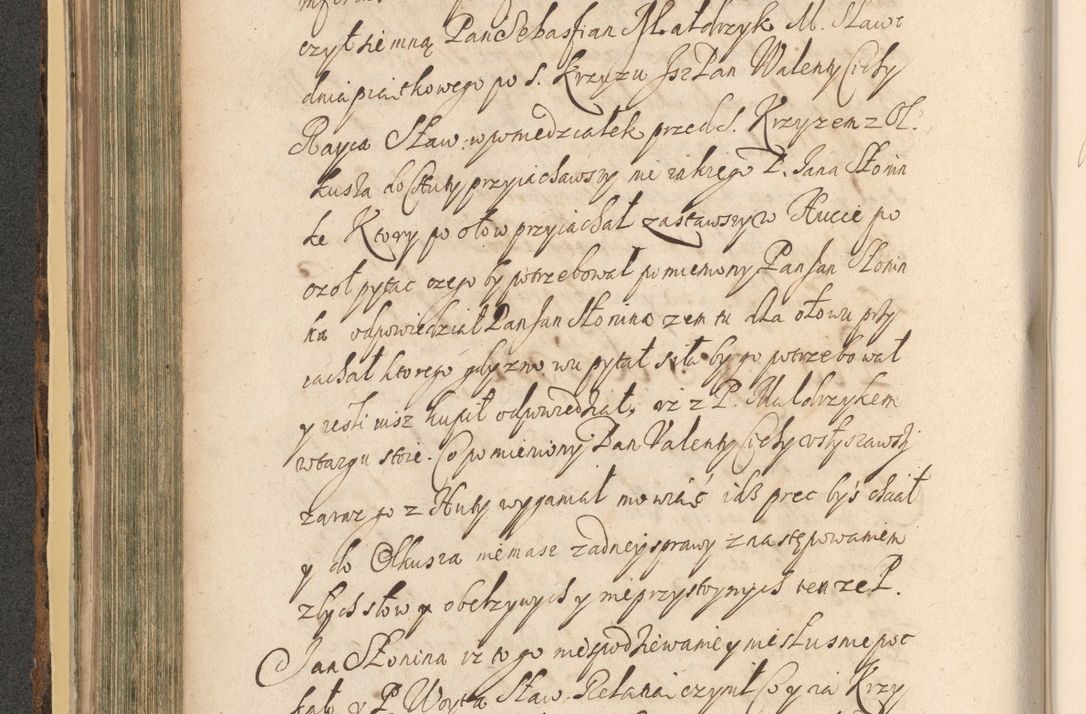 czył sie mną Pan Sebastian Małdrzyk M. Sławc
dnia piątkowego po S. Krzyzu Jsz Pan Walenty Cichy
Rayca Sław: w poniedziałek przed S. Krzyzem z Ol.
kusza do Huty przyiachawszy nie iakiego P. Jana Słonin
ke Ktory po ołow przyiachał zastawszy w Hucie po
czoł pytac czego by potrzebował pomieniony Pan Jan Słonin
ka odpowiedział Pan Jan Słonina zem tu dla ołowu przy
iachał ktorego gdy znowu pytał siła by go potrzebował
y iesli iusz kupił odpowiedział, iz z P. Małdrzykem
w targu stoie. Co pomieniony Pan Valenty Cichy usłyszawszy
zaraz go z Huty wyganiał mowiąc idz precz byś chciał
y do Olkusza niemasz zadney sprawy z następowaniem
złych słow y obelzywych y nieprzystoynych tenze P.
Jan Słonina iz to go niespodziewanie y niesłusznie poc
kało y P. Woyta Sław: Relatia czynił Co y ia Krzy